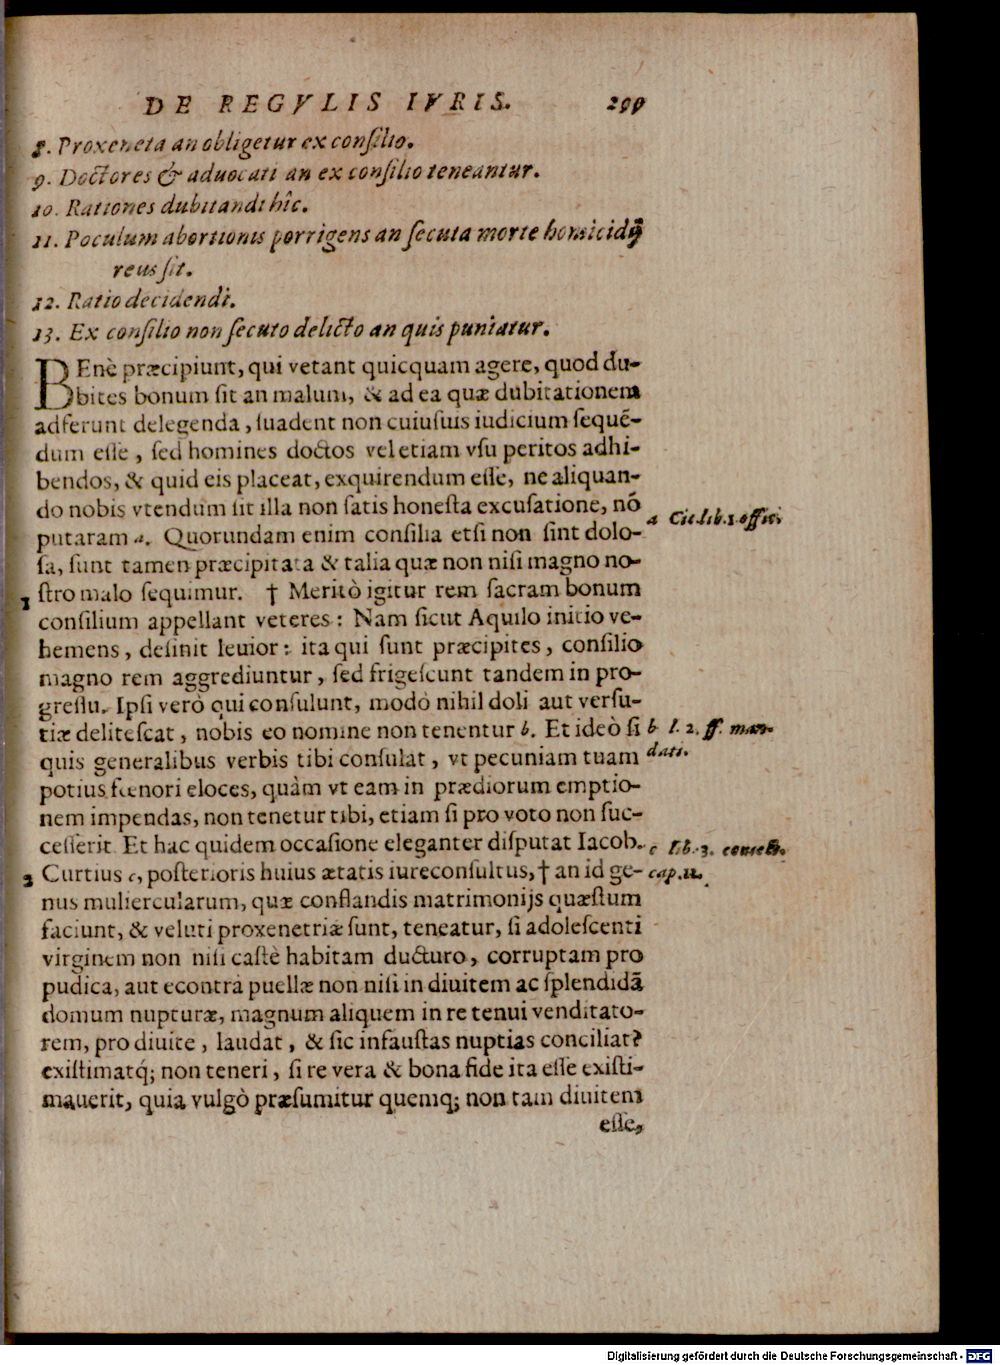 DE REGVLIS IVRIS. 299
8. Proxeneta an obligetur ex conſilio.
9. Doctores & aduocati an ex conſilio teneantur.
10. Rationes dubitandi hîc.
11. Poculum abortionis porrigens an ſecuta morte homicidij
reus ſit.
12. Ratio decidendi.
13. Ex conſilio non ſecuto delicto an quis puniatur.
BEnè præcipiunt, qui vetant quicquam agere, quod du-
bites bonum ſit an malum, & ad ea quæ dubitationem
adferunt delegenda, ſuadent non cuiuſuis iudicium ſequē-
dum eſſe, ſed homines doctos vel etiam vſu peritos adhi-
bendos, & quid eis placeat, exquirendum eſſe, ne aliquan-
do nobis vtendum ſit illa non ſatis honeſta excuſatione, nō
putaram a. Quorundam enim conſilia etſi non ſint dolo-
a Cic. lib. 1. offic.
ſa, ſunt tamen præcipitata & talia quæ non niſi magno no-
1 ſtro malo ſequimur. † Meritò igitur rem ſacram bonum
conſilium appellant veteres: Nam ſicut Aquilo initio ve-
hemens, deſinit leuior: ita qui ſunt præcipites, conſilio
magno rem aggrediuntur, ſed frigeſcunt tandem in pro-
greſſu. Ipſi verò qui conſulunt, modò nihil doli aut verſu-
tiæ deliteſcat, nobis eo nomine non tenentur b. Et ideò ſi
b l. 2. ff. man-
dati.
quis generalibus verbis tibi conſulat, vt pecuniam tuam
potius fœnori eloces, quàm vt eam in prædiorum emptio-
nem impendas, non tenetur tibi, etiam ſi pro voto non ſuc-
ceſſerit. Et hac quidem occaſione eleganter diſputat Iacob.
c lib. 3. coniect.
cap. 11.
2 Curtius c, poſterioris huius ætatis iureconſultus, † an id ge-
nus muliercularum, quæ conflandis matrimonijs quæſtum
faciunt, & veluti proxenetriæ ſunt, teneatur, ſi adoleſcenti
virginem non niſi caſtè habitam ducturo, corruptam pro
pudica, aut econtra puellæ non niſi in diuitem ac ſplendidā
domum nupturæ, magnum aliquem in re tenui venditato-
rem, pro diuite, laudat, & ſic infauſtas nuptias conciliat?
exiſtimatq́; non teneri, ſi re vera & bona fide ita eſſe exiſti-
mauerit, quia vulgò præſumitur quemq; non tam diuitem
eſſe,
Digitalisierung gefördert durch die Deutsche Forschungsgemeinschaft - DFG